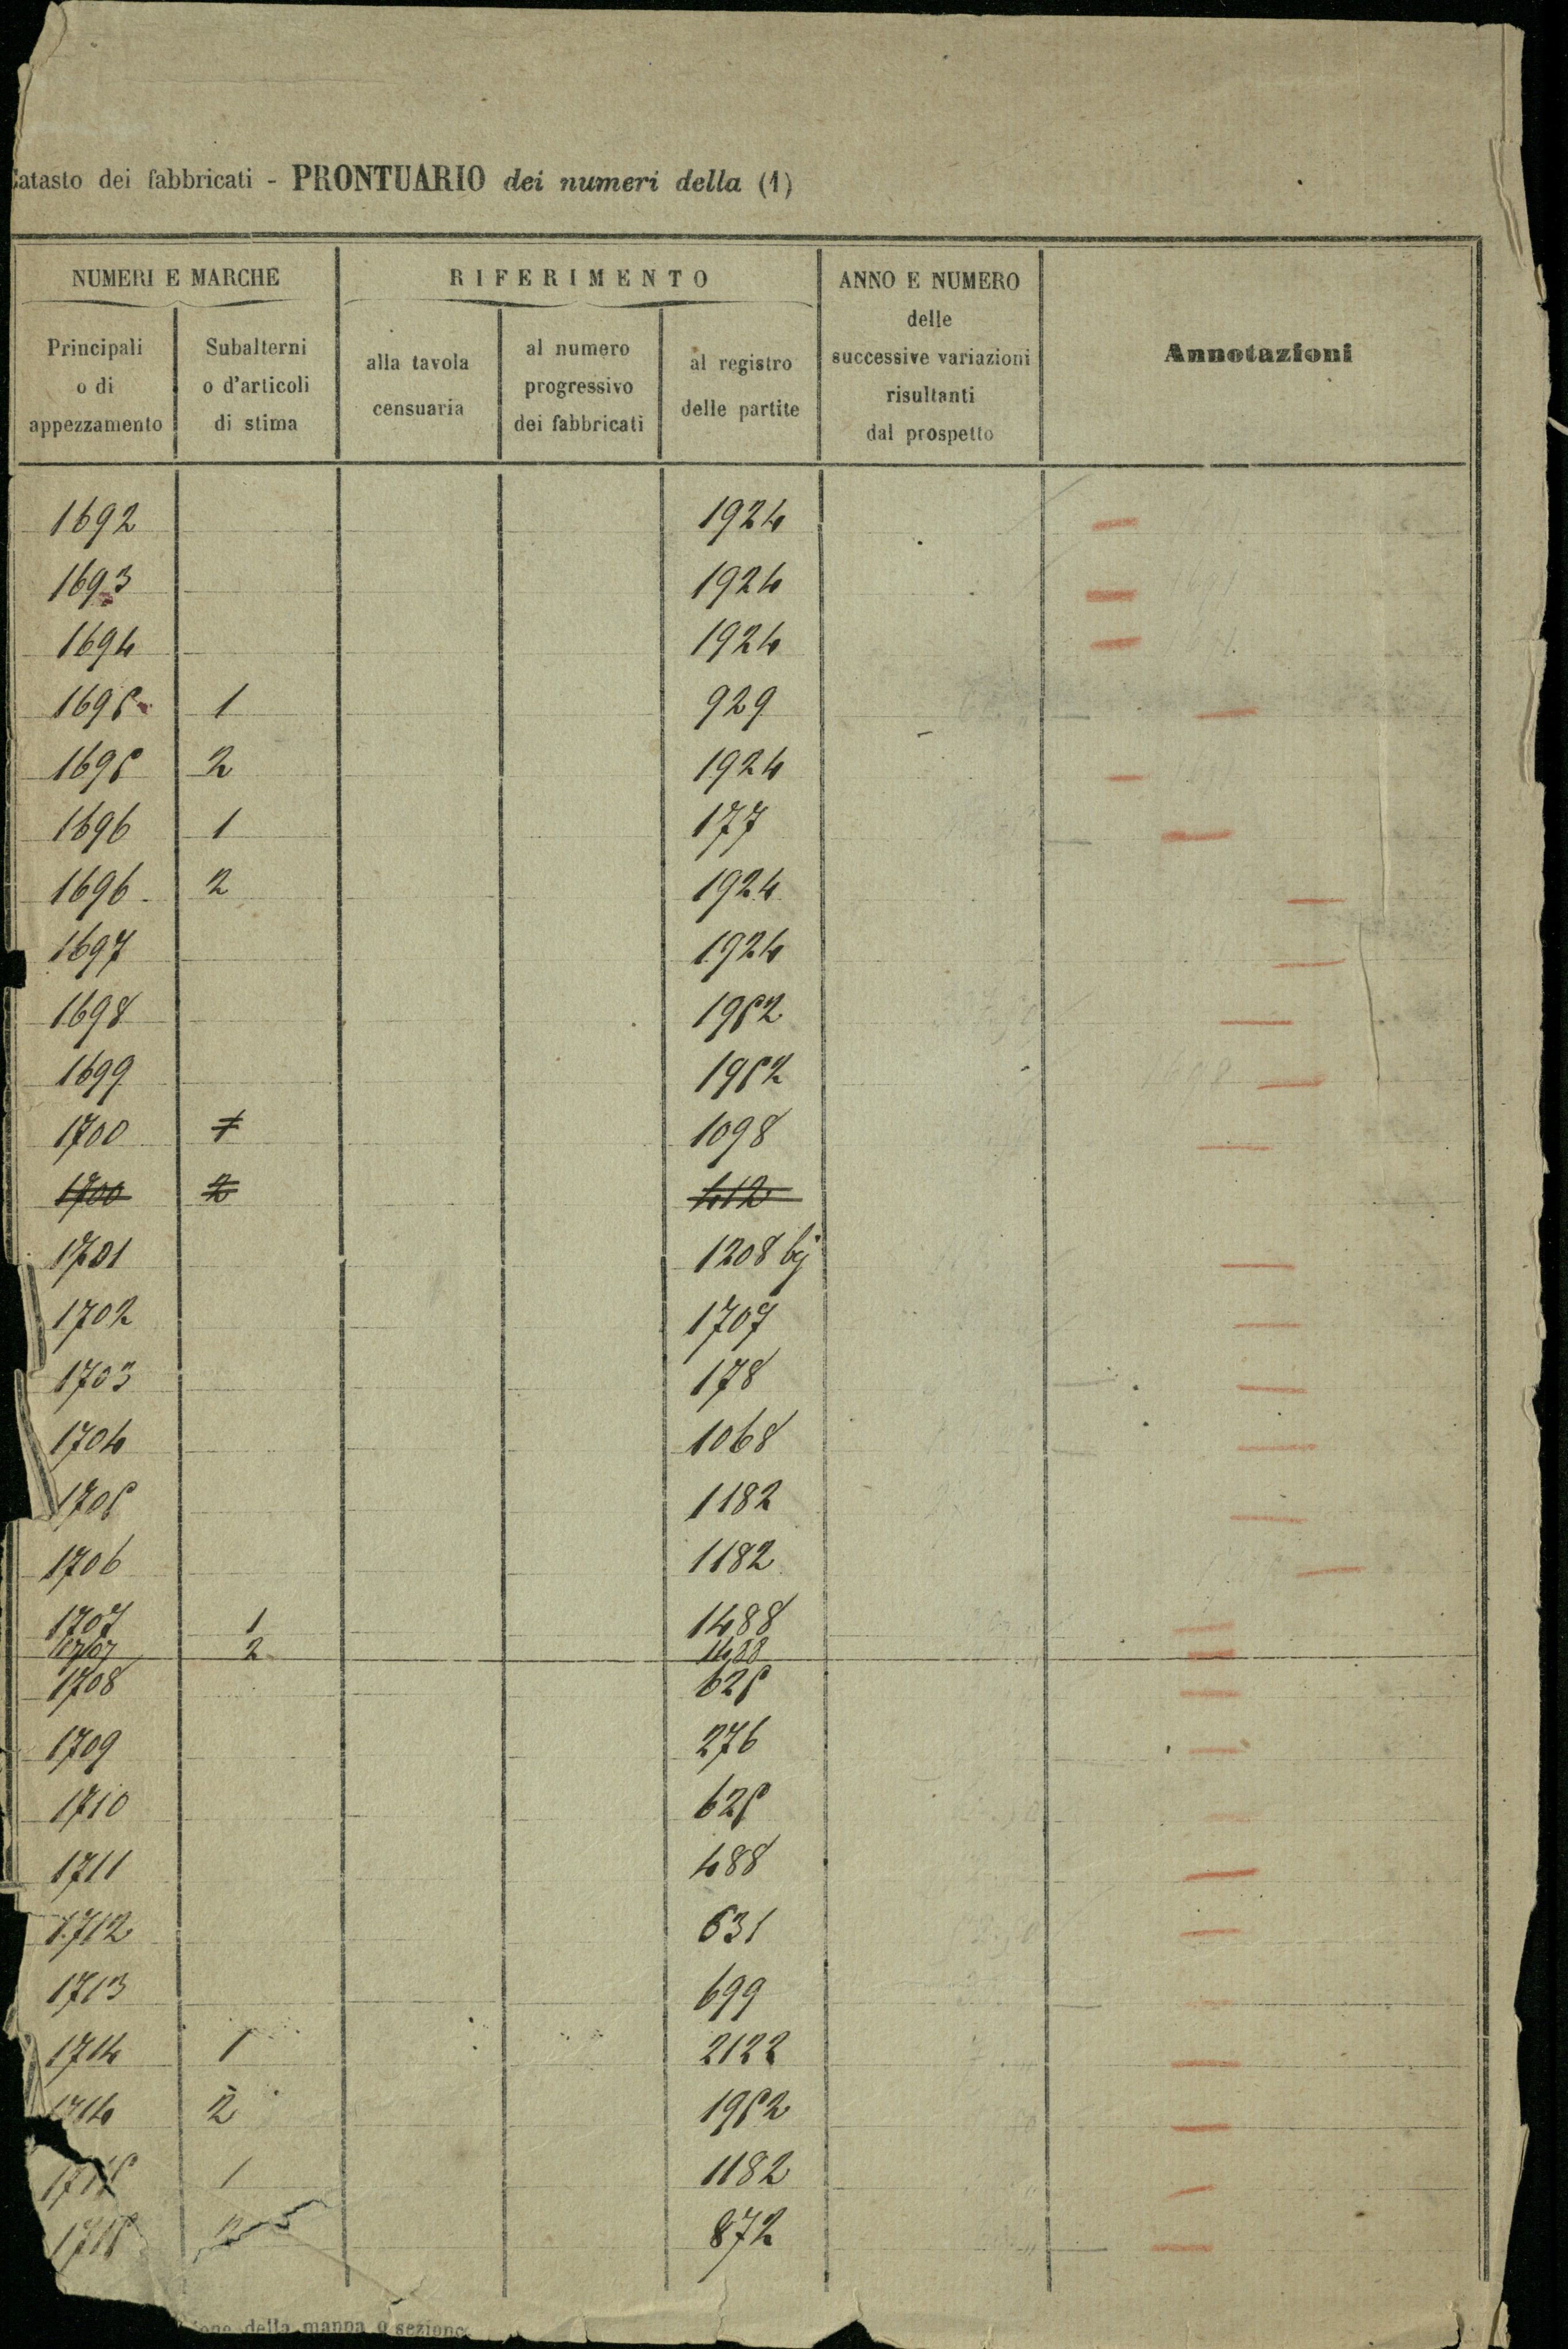 Catasto dei fabbricati - PRONTUARIO dei numeri della (1)
NUMERI E MARCHE RIFERIMENTO ANNO E NUMERO delle successive variazioni risultanti dal prospetto Annotazioni
Principali o di appezzamento Subalterni o d'articoli di stima alla tavola censuaria al numero progressivo dei fabbricati al registro delle partite
1692 1924
1693 1924
1694 1924
1695 1 929
1695 2 1924
1696 1 177
1696 2 1924
1697 1924
1698 1952
1699 1952
1700 1 1098
1700 2 412
1701 1208 bij
1702 1707
1703 178
1704 1068
1705 1182
1706 1182
1707 1 1488
1707 2 1488
1708 625
1709 276
1710 625
1711 488
1712 631
1713 699
1714 1 2122
1714 2 1952
1715 1 1182
1715 2 872
della mappa o sezione